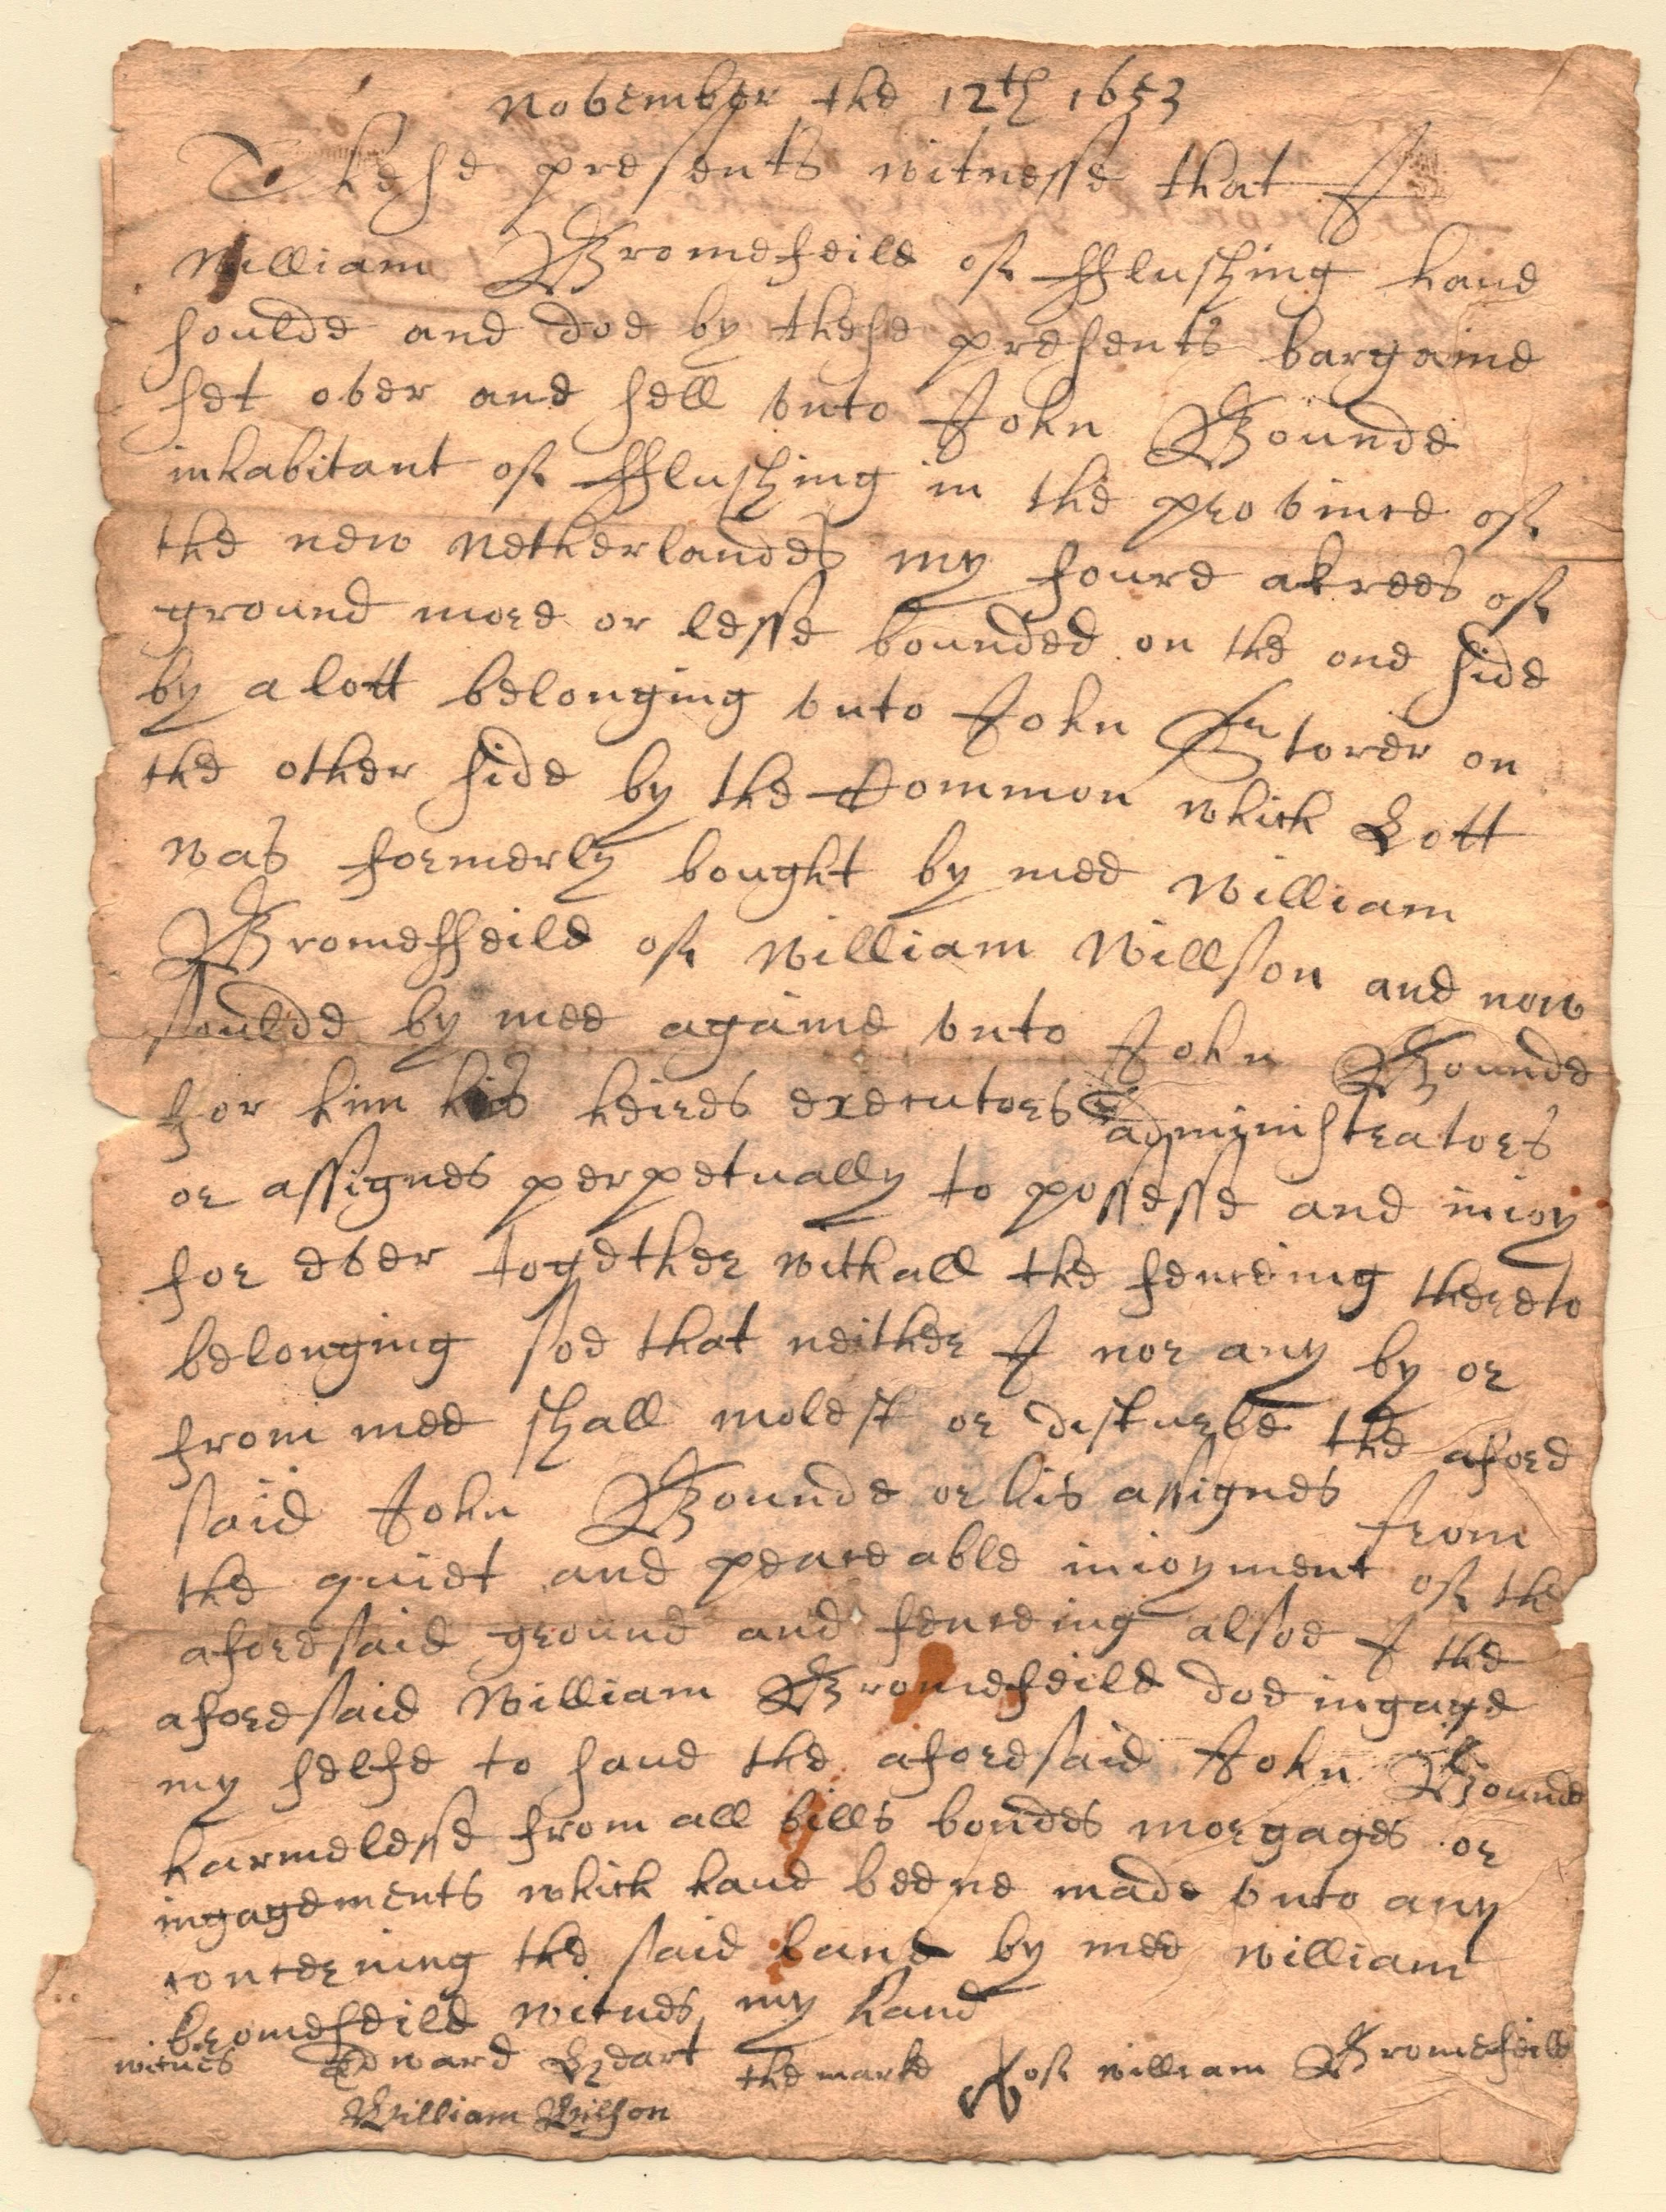 November the 12th 1653
These presents witnesse that I
William Bromefeild of fflushing haue
soulde and doe by these presents bargaine
set over and sell vnto John Bounde
inhabitant of fflushing in the province of
the new netherlandes my foure akrees of
ground more or lesse bounded on the one side
by a lott belonging vnto John Storer on
the other side by the Common which Lott
was formerly bought by mee William
Bromeffeild of William Willson and now
soulde by mee againe vnto John Bounde
for him his heires executores administratores
or assignes perpetually to possesse and inioy
for ever together withall the fenceing thereto
belonging soe that neither I nor any by or
from mee shall molest or disturbe the afore
said John Bounde or his assignes from
the quiet and peaceable inioyment of the
aforesaid ground and fenceing alsoe I the
aforesaid William Bromefeild doe ingage
my selfe to saue the aforesaid John Bounde
harmelesse from all bills bondes morgages or
ingagements which haue beene made vnto any
concerning the said land by mee william
bromefeild witnes my hand
witnes Edward Heart the marke of william Bromefeild
William Wilson